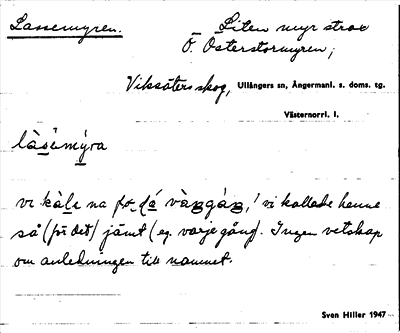 Lassemyren. _ Liten myr strax
Ö. Österstormyren;
Viksäters skog, Ullångers sn, Ångermanl. s. doms. tg.
Västernorrl. l.
làsèmýra
vi kàle na fo_dá vàzgáz,! vi kallade henne
så (för det) jämt (eg. varje gång). Ingen vetskap
om anledningen till namnet.
Sven Hiller 1947